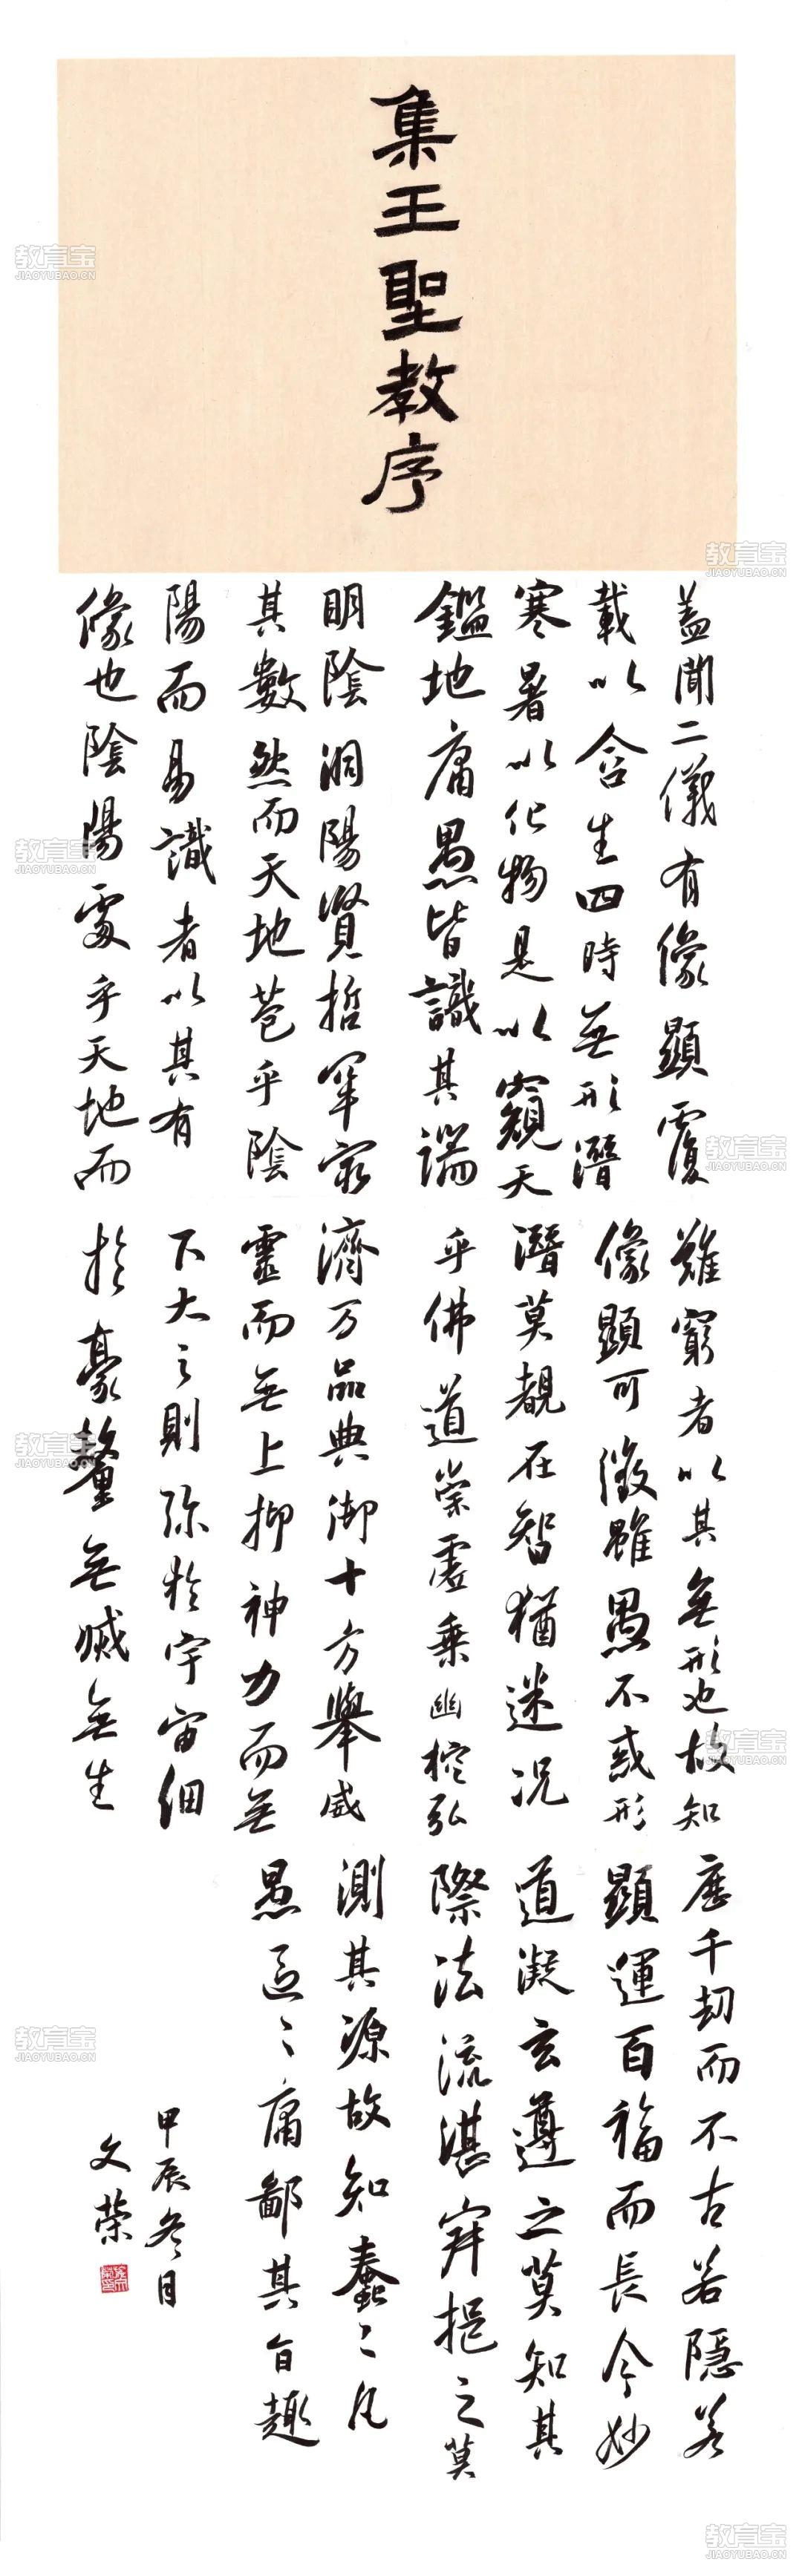 集王聖教序
蓋聞二儀有像顯覆
載以含生四時無形潛
寒暑以化物是以窺天
鑑地庸愚皆識其端
明陰洞陽賢哲罕窮
其數然而天地苞乎陰
陽而易識者以其有
像也陰陽處乎天地而
難窮者以其無形也故知
像顯可徵雖愚不惑形
潛莫覩在智猶迷况
乎佛道崇虛乘幽控弘
濟万品典御十方舉威
靈而無上抑神力而無
下大之則弥於宇宙細
於豪釐無滅無生
歷千劫而不古若隱若
顯運百福而長今妙
道凝玄遵之莫知其
際法流湛寂挹之莫
測其源故知蠢〻凡
愚區〻庸鄙其旨趣
甲辰冬月
文榮
教育宝
JIAOYUBAO.CN
教育宝
JIAOYUBAO.CN
教育宝
JIAOYUBAO.CN
教育宝
JIAOYUBAO.CN
教育宝
JIAOYUBAO.CN
教育宝
JIAOYUBAO.CN
教育宝
JIAOYUBAO.CN
教育宝
JIAOYUBAO.CN